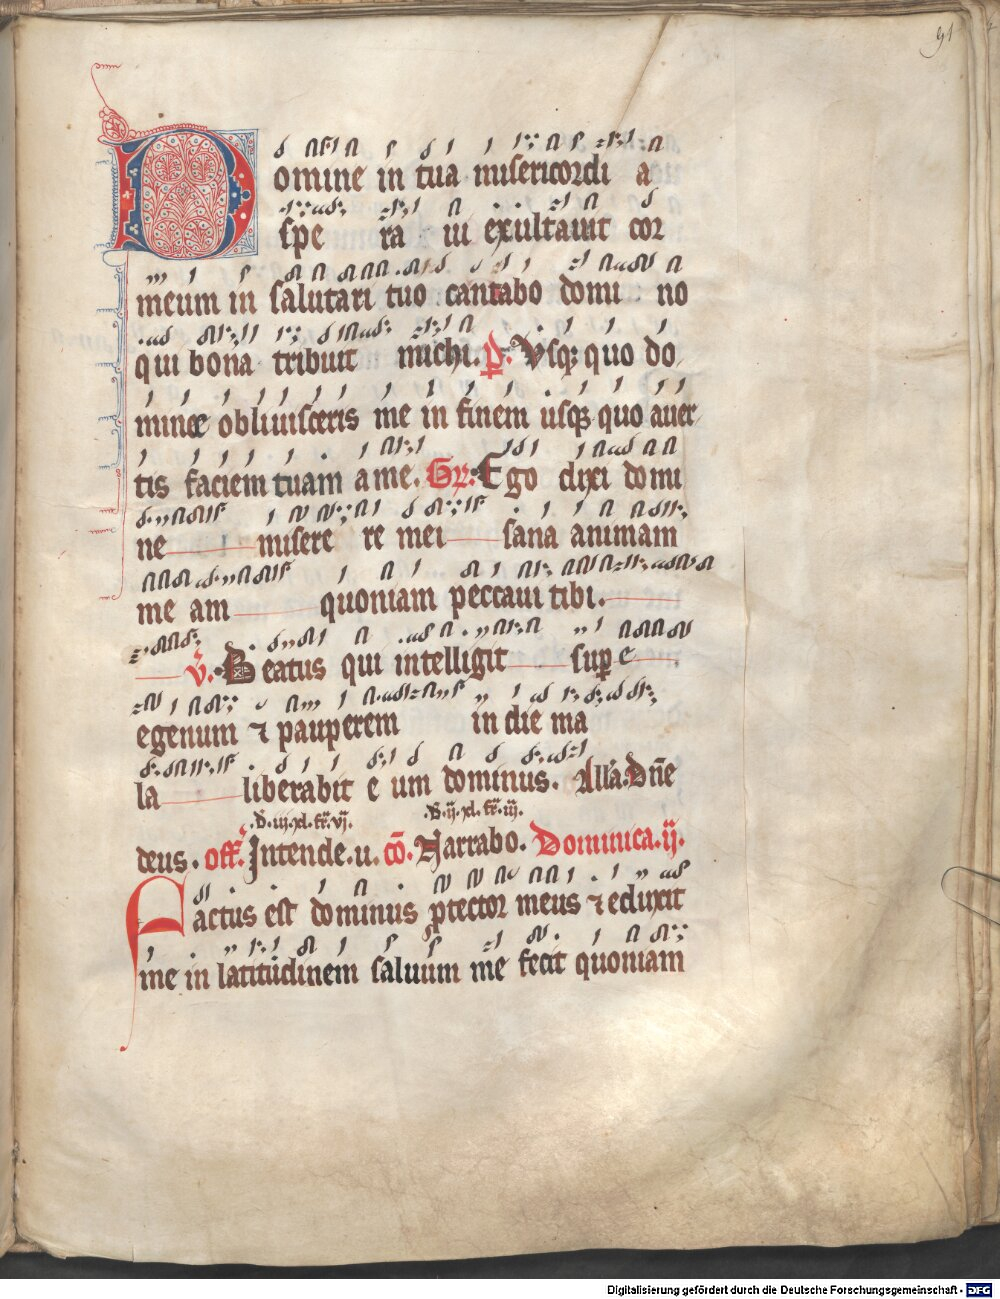 91
Domine in tua misericordi a
spe ra ui exultauit cor
meum in salutari tuo cantabo domi no
qui bona tribuit michi. P̄. Vsq; quo do
mine obliuisceris me in finem usq; quo auer
tis faciem tuam a me. Gr: Ego dixi domi
ne misere re mei sana animam
me am quoniam peccaui tibi.
v̄. Beatus qui intelligit supe
egenum ⁊ pauperem in die ma
la liberabit e um dominus. All'a. Dn̄e
deus. off. Intende. u. cō. Narrabo. Dominica. ij.
Factus est dominus ꝓtector meus ⁊ eduxit
me in latitudinem saluum me fecit quoniam
Digitalisierung gefördert durch die Deutsche Forschungsgemeinschaft - DFG